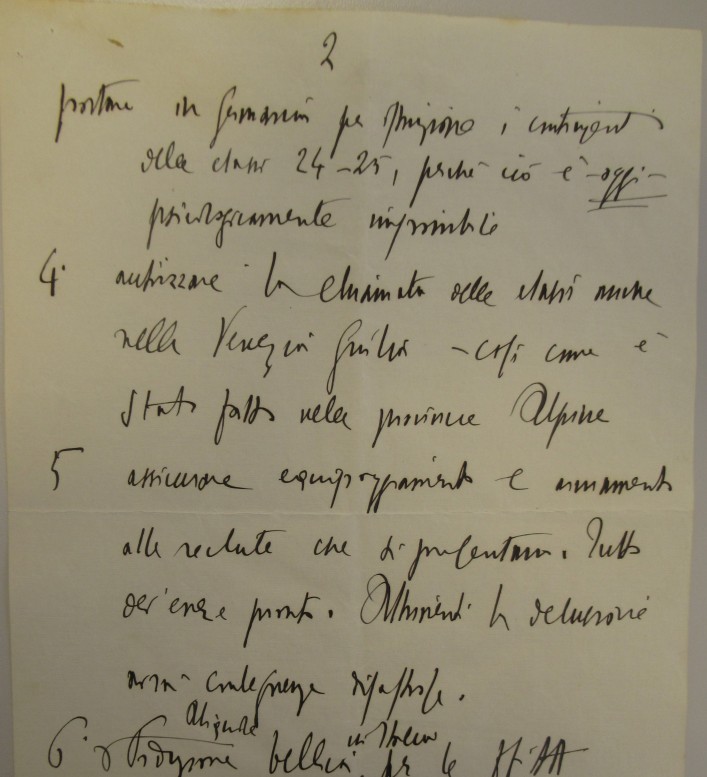 2
portare in Germania per istruzione i contingenti
delle classi 24-25, perché ciò è -oggi-
psicologicamente impossibile
4° autorizzare la chiamata delle classi anche
nella Venezia Giulia - così come è
stato fatto nelle provincie Alpine
5 assicurare equipaggiamento e armamento
alle reclute che si presentano. Tutto
dev'essere pronto. Altrimenti la delusione
avrà conseguenze disastrose.
6°